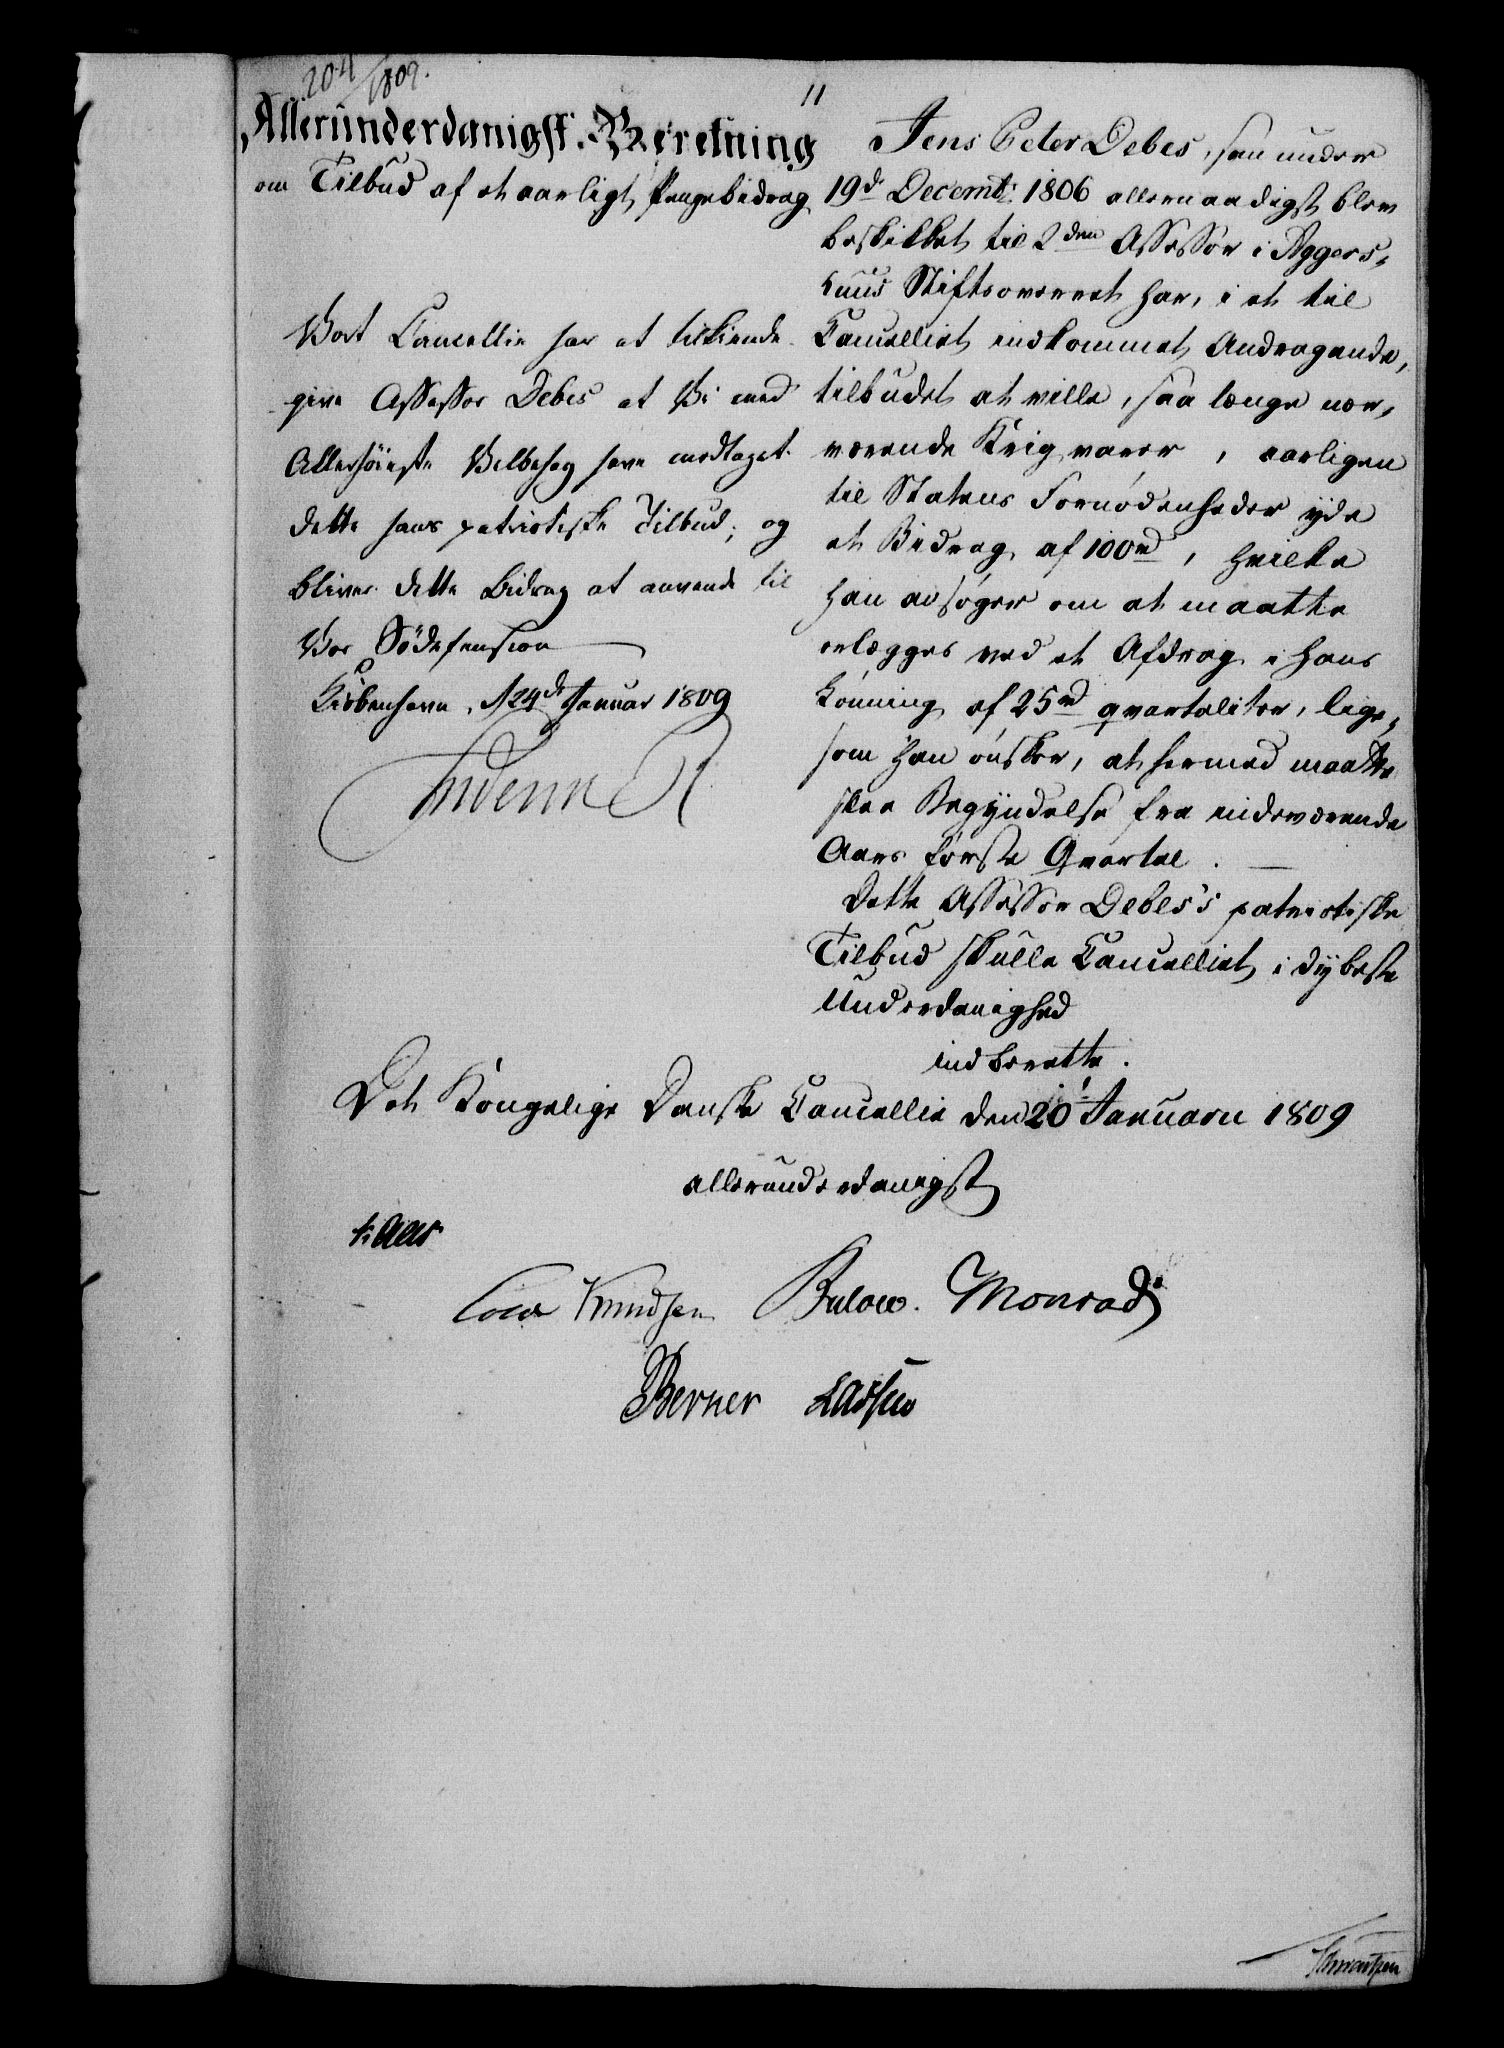 204/1809.
11
Allerunderdanigst Beretning
om Tilbud af et aarligt Pengebidrag
Vort Cancellie har at tilkiende-
give Assessor Debes at Vi med
Allerhöieste Velbehag have modtaget
dette hans patriotiske Tilbud; og
bliver dette Bidrag at anvende til
Vor Södefension
Kiöbenhavn, d 24de Januar 1809
Frideric R
Jens Peter Debes, som under
19de Decembr: 1806 allernaadigst blev
beskikket til 2den Assessor i Aggers-
huus Stiftsoverret har, i et til
Cancelliet indkommet Andragende,
tilbudet at ville, saa længe nær-
værende Krig varer, aarligen
til Statens Fornødenheder yde
et Bidrag af 100 rd, hvilke
han ansøger om at maatte
erlægges ved et Afdrag i hans
Lönning af 25 rd qvartaliter, lige-
som han önsker, at hermed maatte
skee Begyndelse fra indeværende
Aars første Qvartal.
Dette Assessor Debes's patriotiske
Tilbud skulle Cancelliet i dybeste
Underdanighed
indberette.
Det Kongelige Danske Cancellie den 20 Januarii 1809
allerunderdanigst
Kaas
Cold Knudsen Bülow. Monrad
Berner Lassen